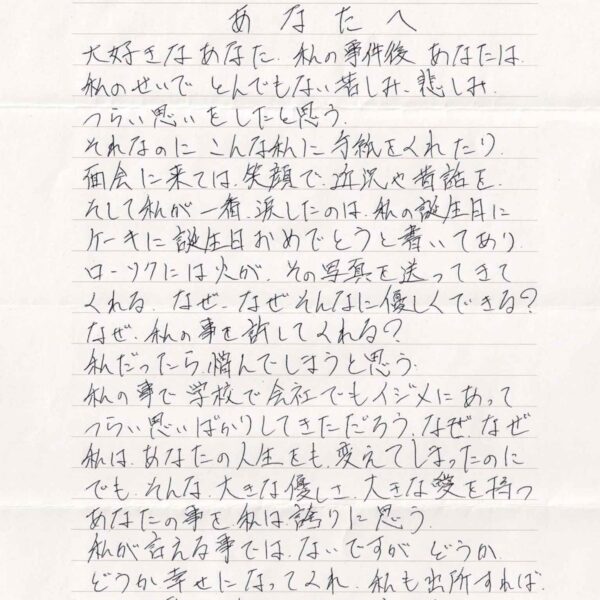 あなたへ
大好きなあなた．私の事件後 あなたは．
私のせいで とんでもない苦しみ、悲しみ．
つらい思いをしたと思う．
それなのに こんな私に手紙をくれたり．
面会に来ては．笑顔で．近況や昔話を．
そして私が一番．涙したのは．私の誕生日に
ケーキに誕生日おめでとうと書いてあり．
ローソクには火が、その写真を送ってきて
くれる．なぜ．なぜそんなに優しくできる？
なぜ．私の事を許してくれる？
私だったら．悩んでしまうと思う．
私の事で 学校で会社でもイジメにあって
つらい思いばかりしてきただろう．なぜ．なぜ
私は．あなたの人生をも．変えてしまったのに
でも．そんな．大きな優しさ．大きな愛を持つ
あなたの事を．私は．誇りに思う．
私が言える事では．ないですが どうか．
どうか幸せになってくれ．私も出所すれば．